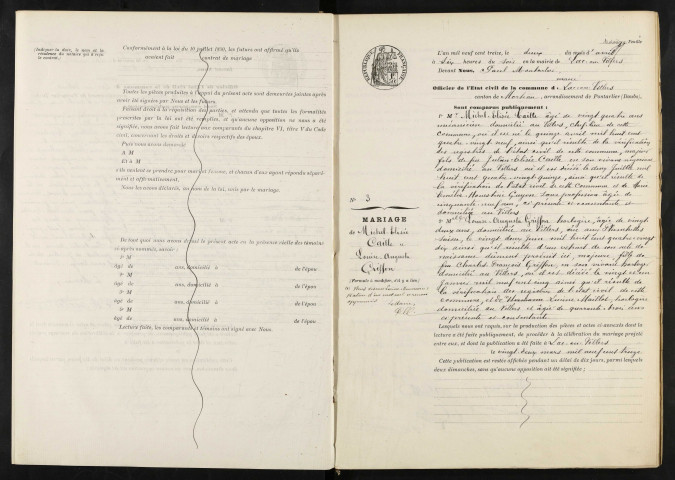 (Indiquer la date, le nom et la
résidence du notaire qui a reçu
le contrat.)
Conformément à la loi du 10 juillet 1850, les futurs ont affirmé qu'ils
avaient fait contrat de mariage
Toutes les pièces produites à l'appui du présent acte sont demeurées jointes après
avoir été signées par Nous et les futurs.
Faisant droit à la réquisition des parties, et attendu que toutes les formalités
prescrites par la loi ont été remplies et qu'aucune opposition ne nous a été
signifiée, nous avons fait lecture aux comparants du chapitre VI, titre V du Code
civil, concernant les droits et devoirs respectifs des époux.
Puis nous avons demandé
A M
Et à M
s'ils veulent se prendre pour mari et femme, et chacun d'eux ayant répondu séparé-
ment et affirmativement,
Nous les avons déclarés, au nom de la loi, unis par le mariage.
De tout quoi nous avons dressé le présent acte en la présence réelle des témoins
ci-après nommés, savoir :
1° M
âgé de ans, domicilié à de l'époux
2° M
âgé de ans, domicilié à de l'époux
3° M
âgé de ans, domicilié à de l'épouse
4° M
âgé de ans, domicilié à de l'épouse
Lecture faite, les comparants et témoins ont signé avec Nous.
Feuille
L'an mil neuf cent treize, le deux du mois d'avril
à six heures du soir en la mairie de Lac-ou-Villers
Devant Nous, Paul
maire
Officier de l'État civil de la commune de Lac-ou-Villers
canton de Morteau, arrondissement de Pontarlier (Doubs).
Sont comparus publiquement :
1° Mr Michel Elisée Caille âgé de vingt quatre ans
domicilié au Villers, chef-lieu de cette
Commune, où il est né le quinze avril mil huit cent
quatre vingt neuf, ainsi qu'il résulte de la vérification
des registres de l'état civil de cette commune, majeur
fils de feu Julien Elisée Caille en son vivant
domicilié au Villers où il est décédé le deux Juillet mil
huit cent quatre vingt quinze, ainsi qu'il résulte de
la vérification de l'état civil de cette Commune et de
sans profession âgée de
cinquante neuf ans, ici présente et consentante et
domiciliée au Villers
2° Mlle Louise Auguste Griffon horlogère, âgée de vingt
deux ans, domiciliée au Villers, née aux
Suisse, le vingt deux juin mil huit cent quatre vingt
dix ainsi qu'il résulte d'un extrait de son acte de
naissance dûment produit ici, majeure, fille de
feu Charles François Griffon, en son vivant horloger
domicilié au Villers, où il est décédé le vingt et un
janvier mil neuf cent cinq ainsi qu'il résulte de
la vérification des registres de l'état civil de cette
commune, et de Maillot, horlogère
domiciliée au Villers et âgée de quarante trois ans
ici présente et consentante.
Lesquels nous ont requis, sur la production des pièces et actes ci-annexés dont la
lecture a été faite publiquement, de procéder à la célébration du mariage projeté
entre eux, et dont la publication a été faite à Lac-ou-Villers
le vingt trois mars mil neuf cent treize
Cette publication est restée affichée pendant un délai de dix jours, parmi lesquels
deux dimanches, sans qu'aucune opposition ait été signifiée ;
N° 3
MARIAGE
de Michel Elisée
Caille &
Louise Auguste
Griffon